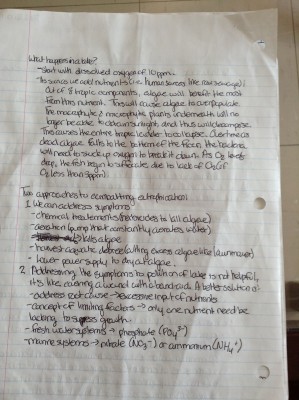 What happens in a lake?
- Start with dissolved oxygen of 10 ppm.
- As soon as we add nutrients (i.e. human sources like raw sewage)
Out of 3 tropic components, algae will benefit the most
from this nutrient. This will cause algae to overpopulate.
The macrophyte & microphyte plants underneath will no
longer be able to obtain sunlight and thus will decompose.
This causes the entire tropic ladder to collapse. Overtime as
dead algae falls to the bottom of the floor, the bacteria
will need to suck up oxygen to break it down. As O₂ levels
drop, the fish begin to suffocate due to lack of O₂ (if
O₂ less than 2ppm).
Two approaches to combatting eutrophication
1. We can address symptoms
- chemical treatments (herbicides to kill algae)
- aeration (pump that constantly aerates water)
→ kills algae
- harvest aquatic (cutting excess algae like lawnmower)
- lower power supply to dry out algae.
2. Addressing the symptoms to pollution of lake is not helpful,
it's like covering a wound with a bandaid. A better solution is:
- address root cause → excessive input of nutrients
- concept of limiting factors → only one nutrient need be
lacking to supress growth.
- fresh water systems → phosphate (PO₄³⁻)
- marine systems → nitrate (NO₃⁻) or ammonium (NH₄⁺)